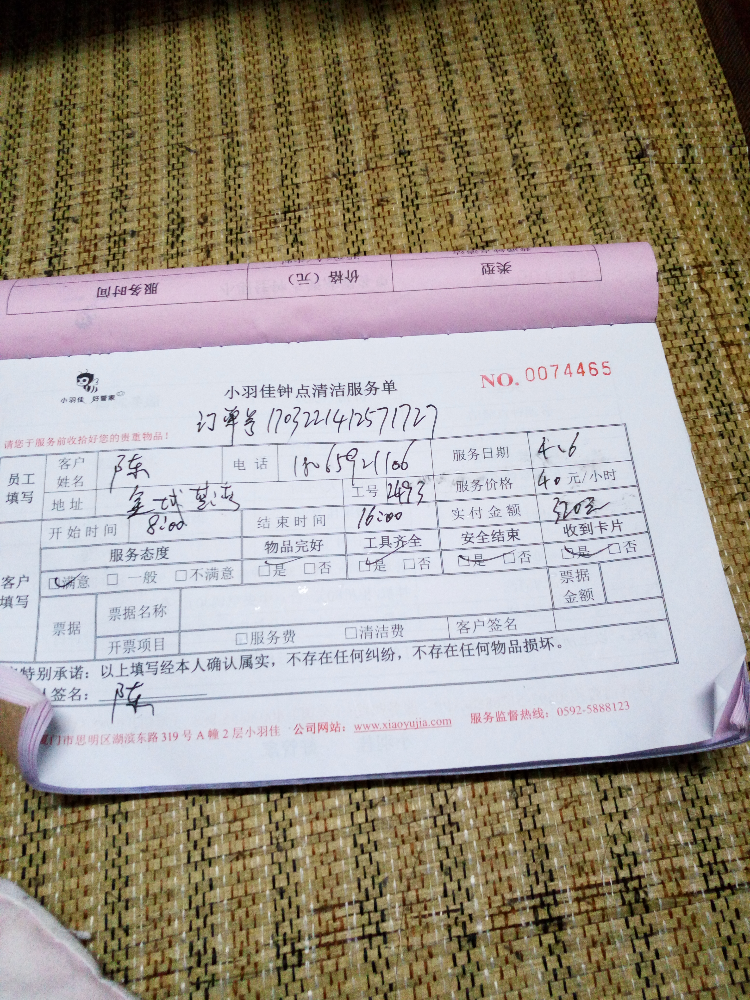 服务时间 价格（元） 类型
小羽佳 好管家
小羽佳钟点清洁服务单 NO. 0074465
订单号 1703221412571727
请您于服务前收拾好您的贵重物品！
员工填写 客户姓名 陈 电话 18065921106 服务日期 4.6
地址 金域蓝湾 工号 2493 服务价格 40 元/小时
开始时间 8:00 结束时间 16:00 实付金额 320元
客户填写 服务态度 物品完好 工具齐全 安全结束 收到卡片
□满意 □一般 □不满意 □是 □否 □是 □否 □是 □否 □是 □否
票据 票据名称 票据金额
开票项目 □服务费 □清洁费 客户签名
特别承诺：以上填写经本人确认属实，不存在任何纠纷，不存在任何物品损坏。
人签名：陈
厦门市思明区湖滨东路 319 号 A 幢 2 层小羽佳 公司网站：www.xiaoyujia.com 服务监督热线：0592-5888123